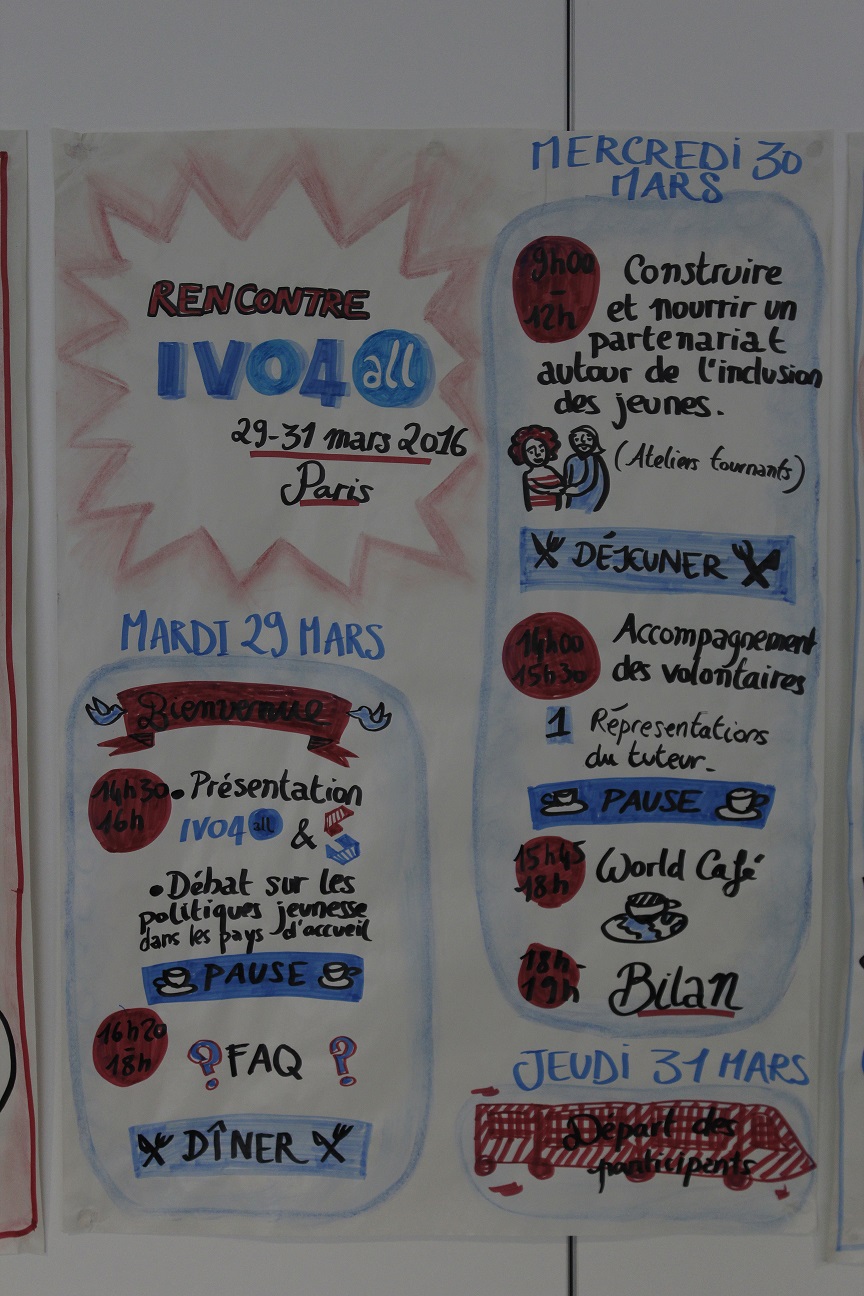 RENCONTRE
IVO4all
29-31 mars 2016
Paris
MARDI 29 MARS
Bienvenue
14h30
16h
• Présentation
IVO4all &
• Débat sur les
politiques jeunesse
dans les pays d'accueil
PAUSE
16h20
-
18h
? FAQ ?
DÎNER
MERCREDI 30
MARS
9h00
-
12h
Construire
et nourrir un
partenariat
autour de l'inclusion
des jeunes.
(Ateliers tournants)
DÉJEUNER
14h00
15h30
Accompagnement
des volontaires
1 Réprésentations
du tuteur.
PAUSE
15h45
-18h
World Café
18h-
19h
Bilan
JEUDI 31 MARS
Départ des
participents